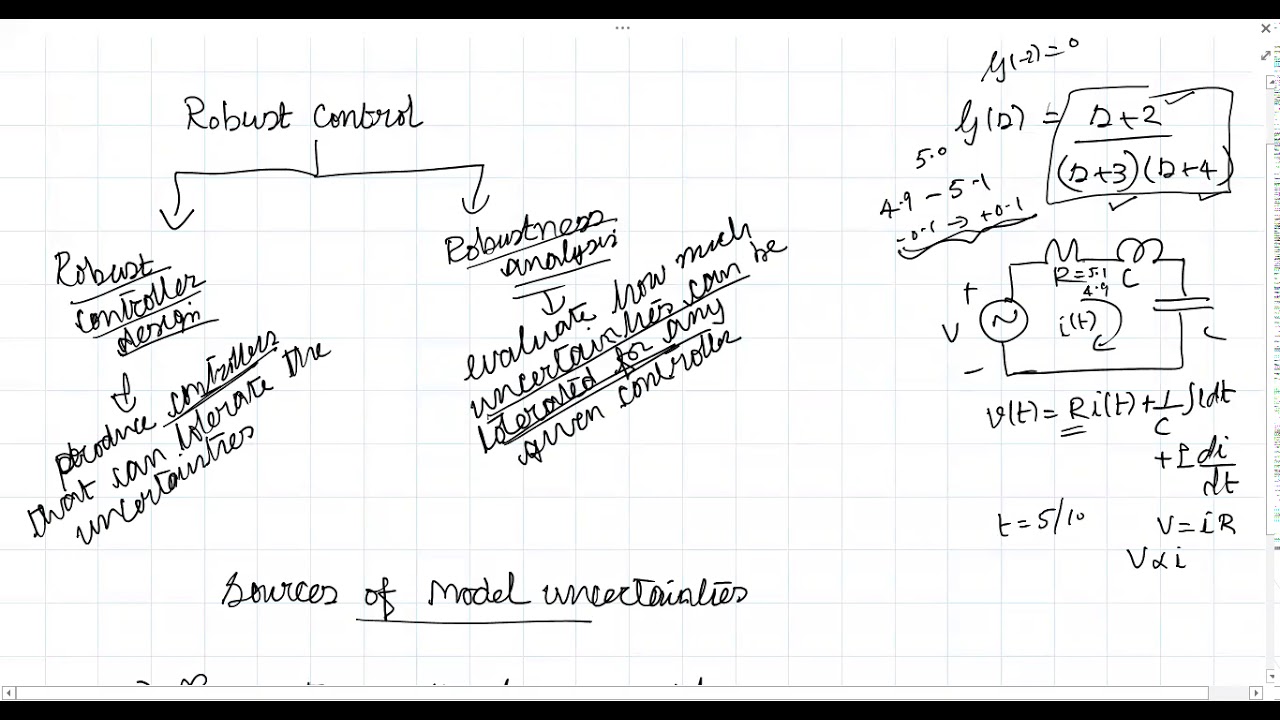 Robust Control
Robust
controller
design
produce controllers
that can tolerate the
uncertainties
Robustness
analysis
evaluate how much
uncertainties can be
tolerated for any
given controller
Sources of Model uncertainties
G(-2)=0
G(s) = s+2
(s+3)(s+4)
5.0
4.9 - 5.1
-0.1 → +0.1
R=5.1
4.9
C
+
V
-
i(t)
v(t) = Ri(t) + 1/C ∫idt
+ L di/dt
t = 5/10
V = iR
V ∝ i